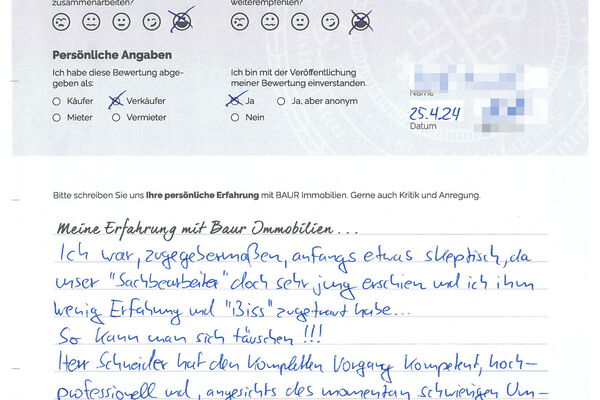 zusammenarbeiten?
weiterempfehlen?
Persönliche Angaben
Ich habe diese Bewertung abge-
geben als:
Käufer
Verkäufer
Mieter
Vermieter
Ich bin mit der Veröffentlichung
meiner Bewertung einverstanden.
Ja
Ja, aber anonym
Nein
Name
25.4.24
Datum
Bitte schreiben Sie uns Ihre persönliche Erfahrung mit BAUR Immobilien. Gerne auch Kritik und Anregung.
Meine Erfahrung mit Baur Immobilien...
Ich war, zugegebermaßen, anfangs etwas skeptisch, da
unser "Sachbearbeiter" doch sehr jung erschien und ich ihm
wenig Erfahrung und "Biss" zugetraut habe...
So kann man sich täuschen!!!
Herr Schneider hat den kompletten Vorgang kompetent, hoch-
professionell und, angesichts des momentan schwierigen Um-